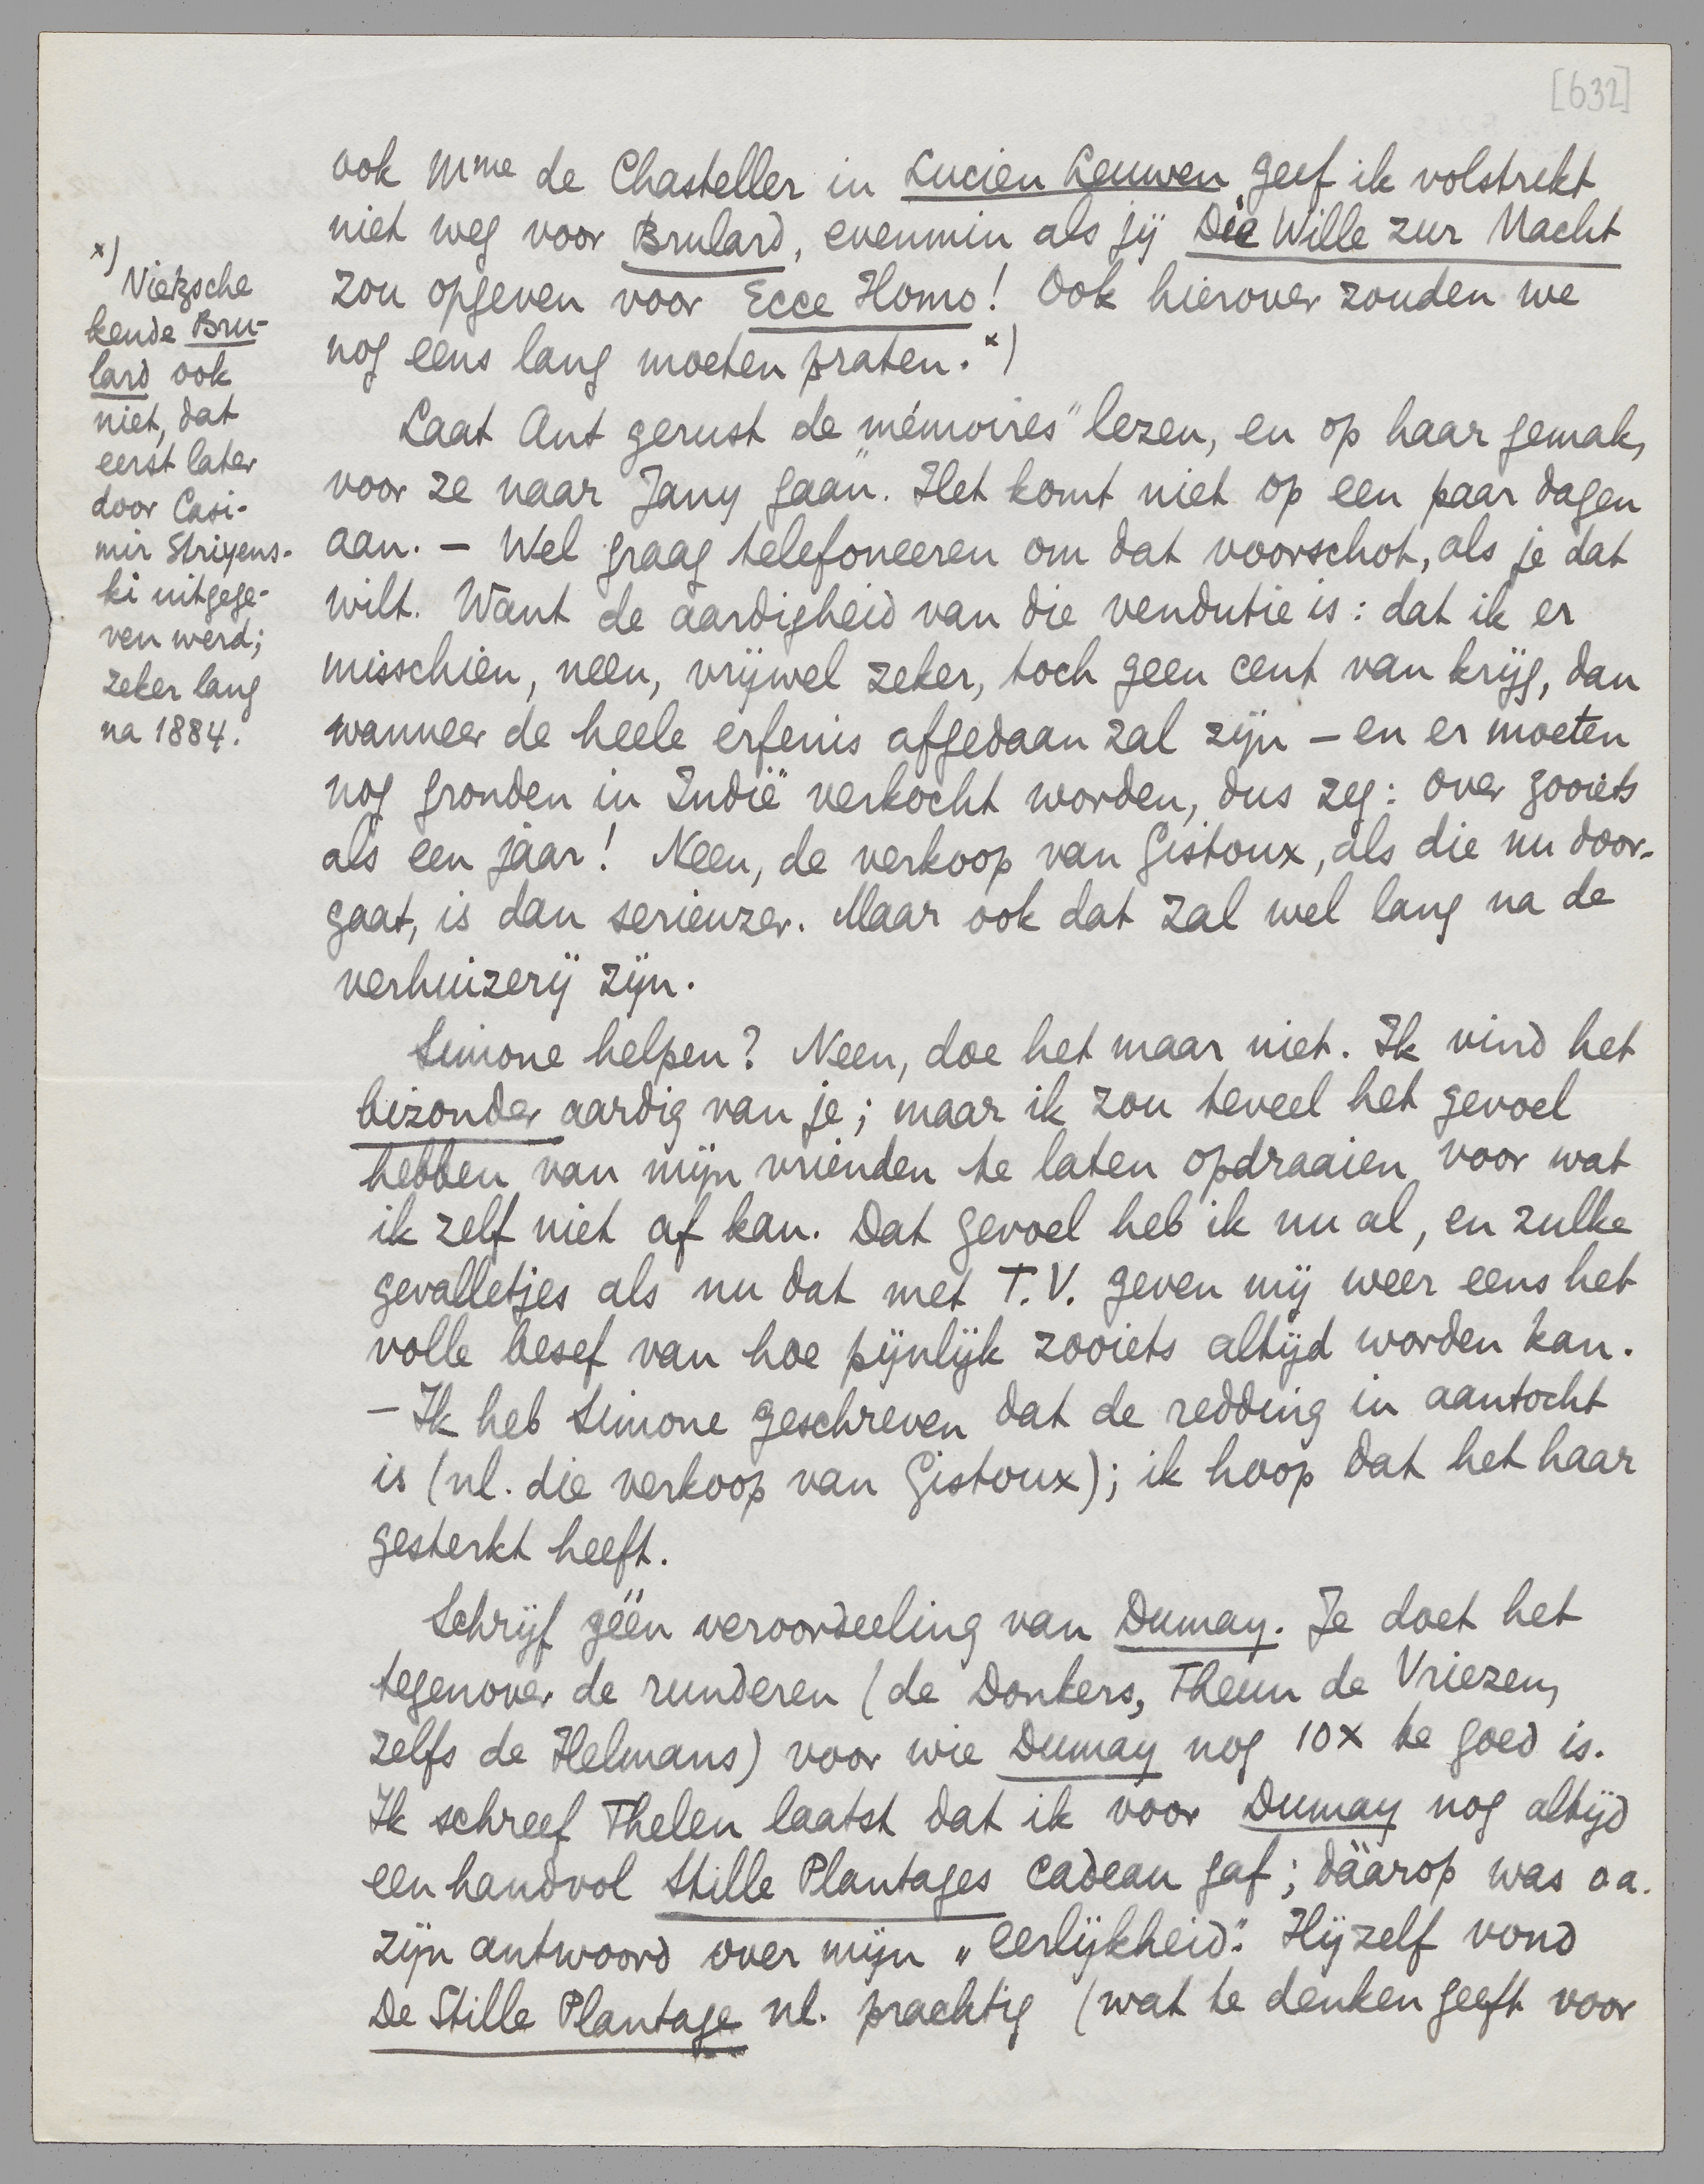 [632]
ook Mme de Chasteller in Lucien Leuwen geef ik volstrekt
niet weg voor Brulard, evenmin als jij Die Wille zur Macht
zou opgeven voor Ecce Homo! Ook hierover zouden we
nog eens lang moeten praten. x)
x)
Nietzsche
kende Bru-
lard ook
niet, dat
eerst later
door Casi-
mir Striyens-
ki uitgege-
ven werd;
zeker lang
na 1884.
Laat Ant gerust de "mémoires" lezen, en op haar gemak,
voor ze naar Jany gaan. Het komt niet op een paar dagen
aan. – Wel graag telefoneeren om dat voorschot, als je dat
wilt. Want de aardigheid van die vendutie is: dat ik er
misschien, neen, vrijwel zeker, toch geen cent van krijg, dan
wanneer de heele erfenis afgedaan zal zijn – en er moeten
nog gronden in Indië verkocht worden, dus zeg: over zooiets
als een jaar! Neen, de verkoop van Gistoux, als die nu door-
gaat, is dan serieuzer. Maar ook dat zal wel lang na de
verhuizerij zijn.
Simone helpen? Neen, doe het maar niet. Ik vind het
bizonder aardig van je; maar ik zou teveel het gevoel
hebben van mijn vrienden te laten opdraaien voor wat
ik zelf niet af kan. Dat gevoel heb ik nu al, en zulke
gevalletjes als nu dat met T.V. geven mij weer eens het
volle besef van hoe pijnlijk zooiets altijd worden kan.
– Ik heb Simone geschreven dat de redding in aantocht
is (nl. die verkoop van Gistoux); ik hoop dat het haar
gesterkt heeft.
Schrijf géén veroordeeling van Dumay. Je doet het
tegenover de runderen (de Donkers, Theun de Vriezen,
zelfs de Helmans) voor wie Dumay nog 10x te goed is.
Ik schreef Thelen laatst dat ik voor Dumay nog altijd
een handvol Stille Plantages cadeau gaf; dáárop was o a.
zijn antwoord over mijn „eerlijkheid”. Hijzelf vond
De Stille Plantage nl. prachtig (wat te denken geeft voor